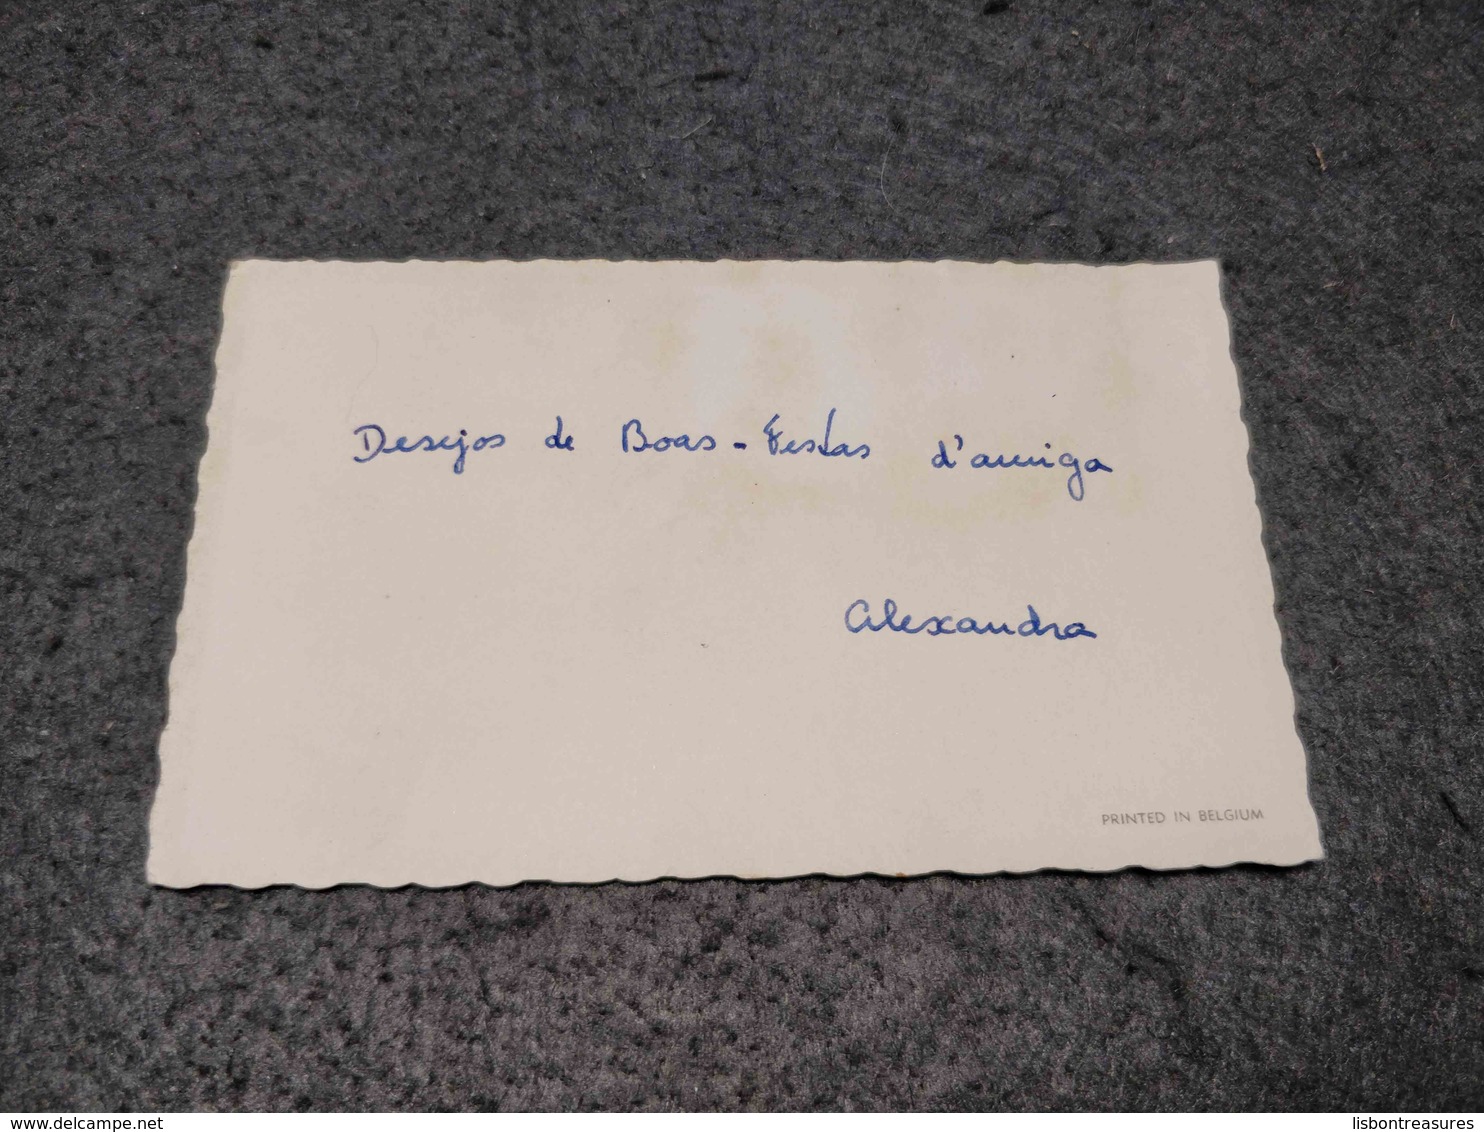 Desejos de Boas-Festas d'amiga
Alexandra
PRINTED IN BELGIUM
delcampe.net
lisbontreasures